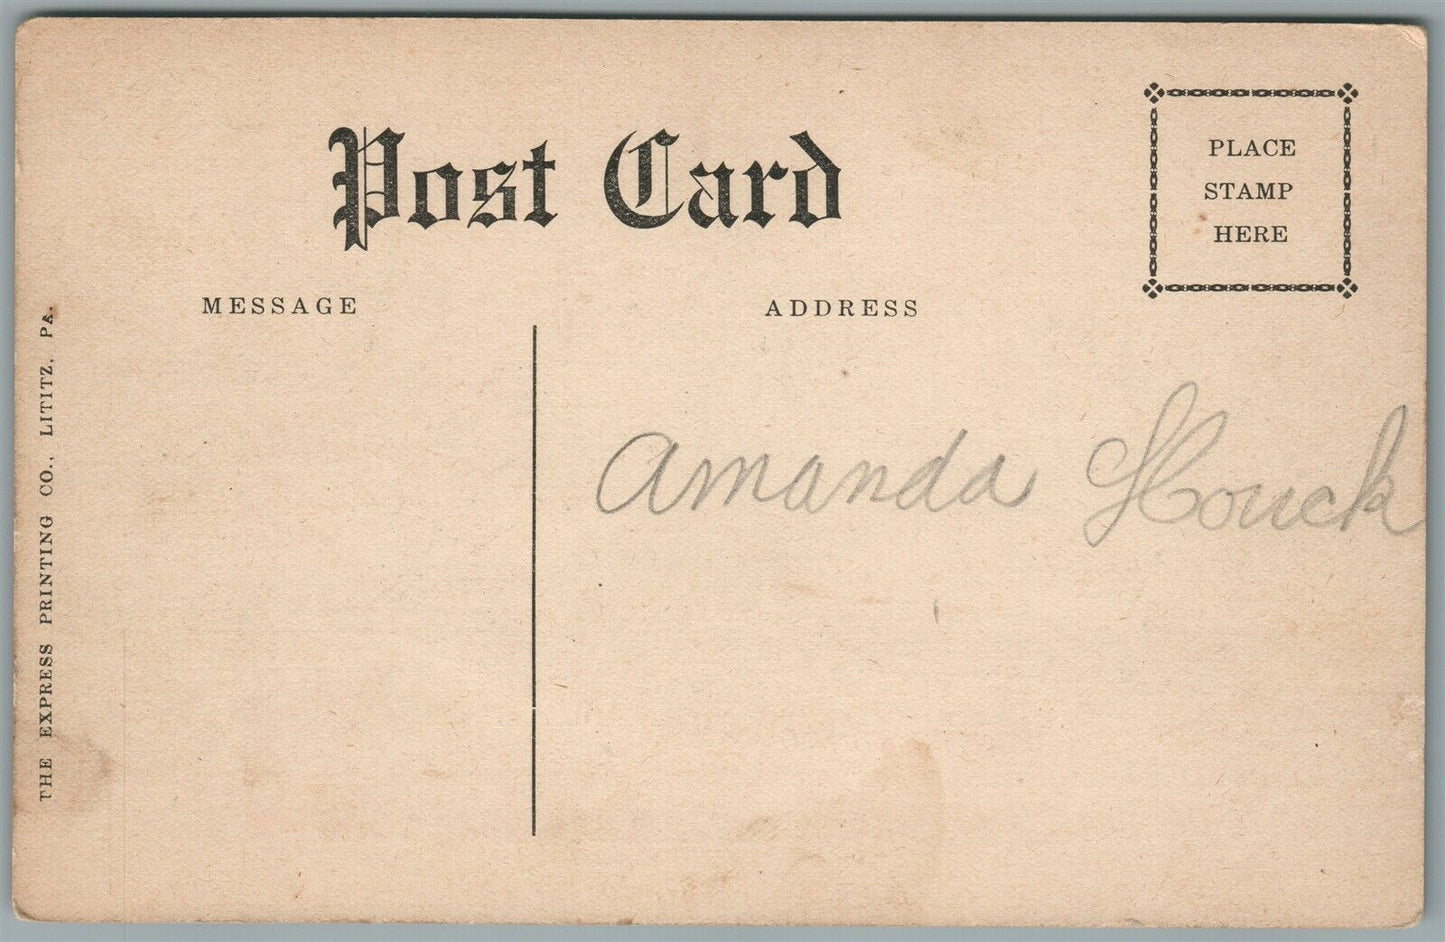 Post Card
PLACE
STAMP
HERE
MESSAGE
ADDRESS
Amanda Houck
THE EXPRESS PRINTING CO., LITITZ, PA.